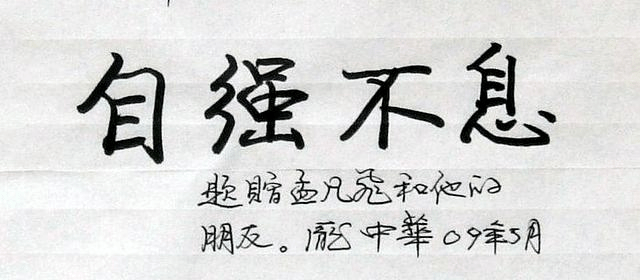 自强不息
题赠孟凡飛和他的
朋友。龐中華09年5月